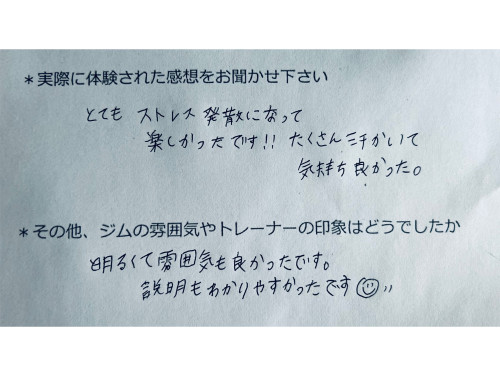 *実際に体験された感想をお聞かせ下さい
とても ストレス発散になって
楽しかったです!! たくさん汗かいて
気持ち良かった。
*その他、ジムの雰囲気やトレーナーの印象はどうでしたか
明るくて雰囲気も良かったです。
説明もわかりやすかったです